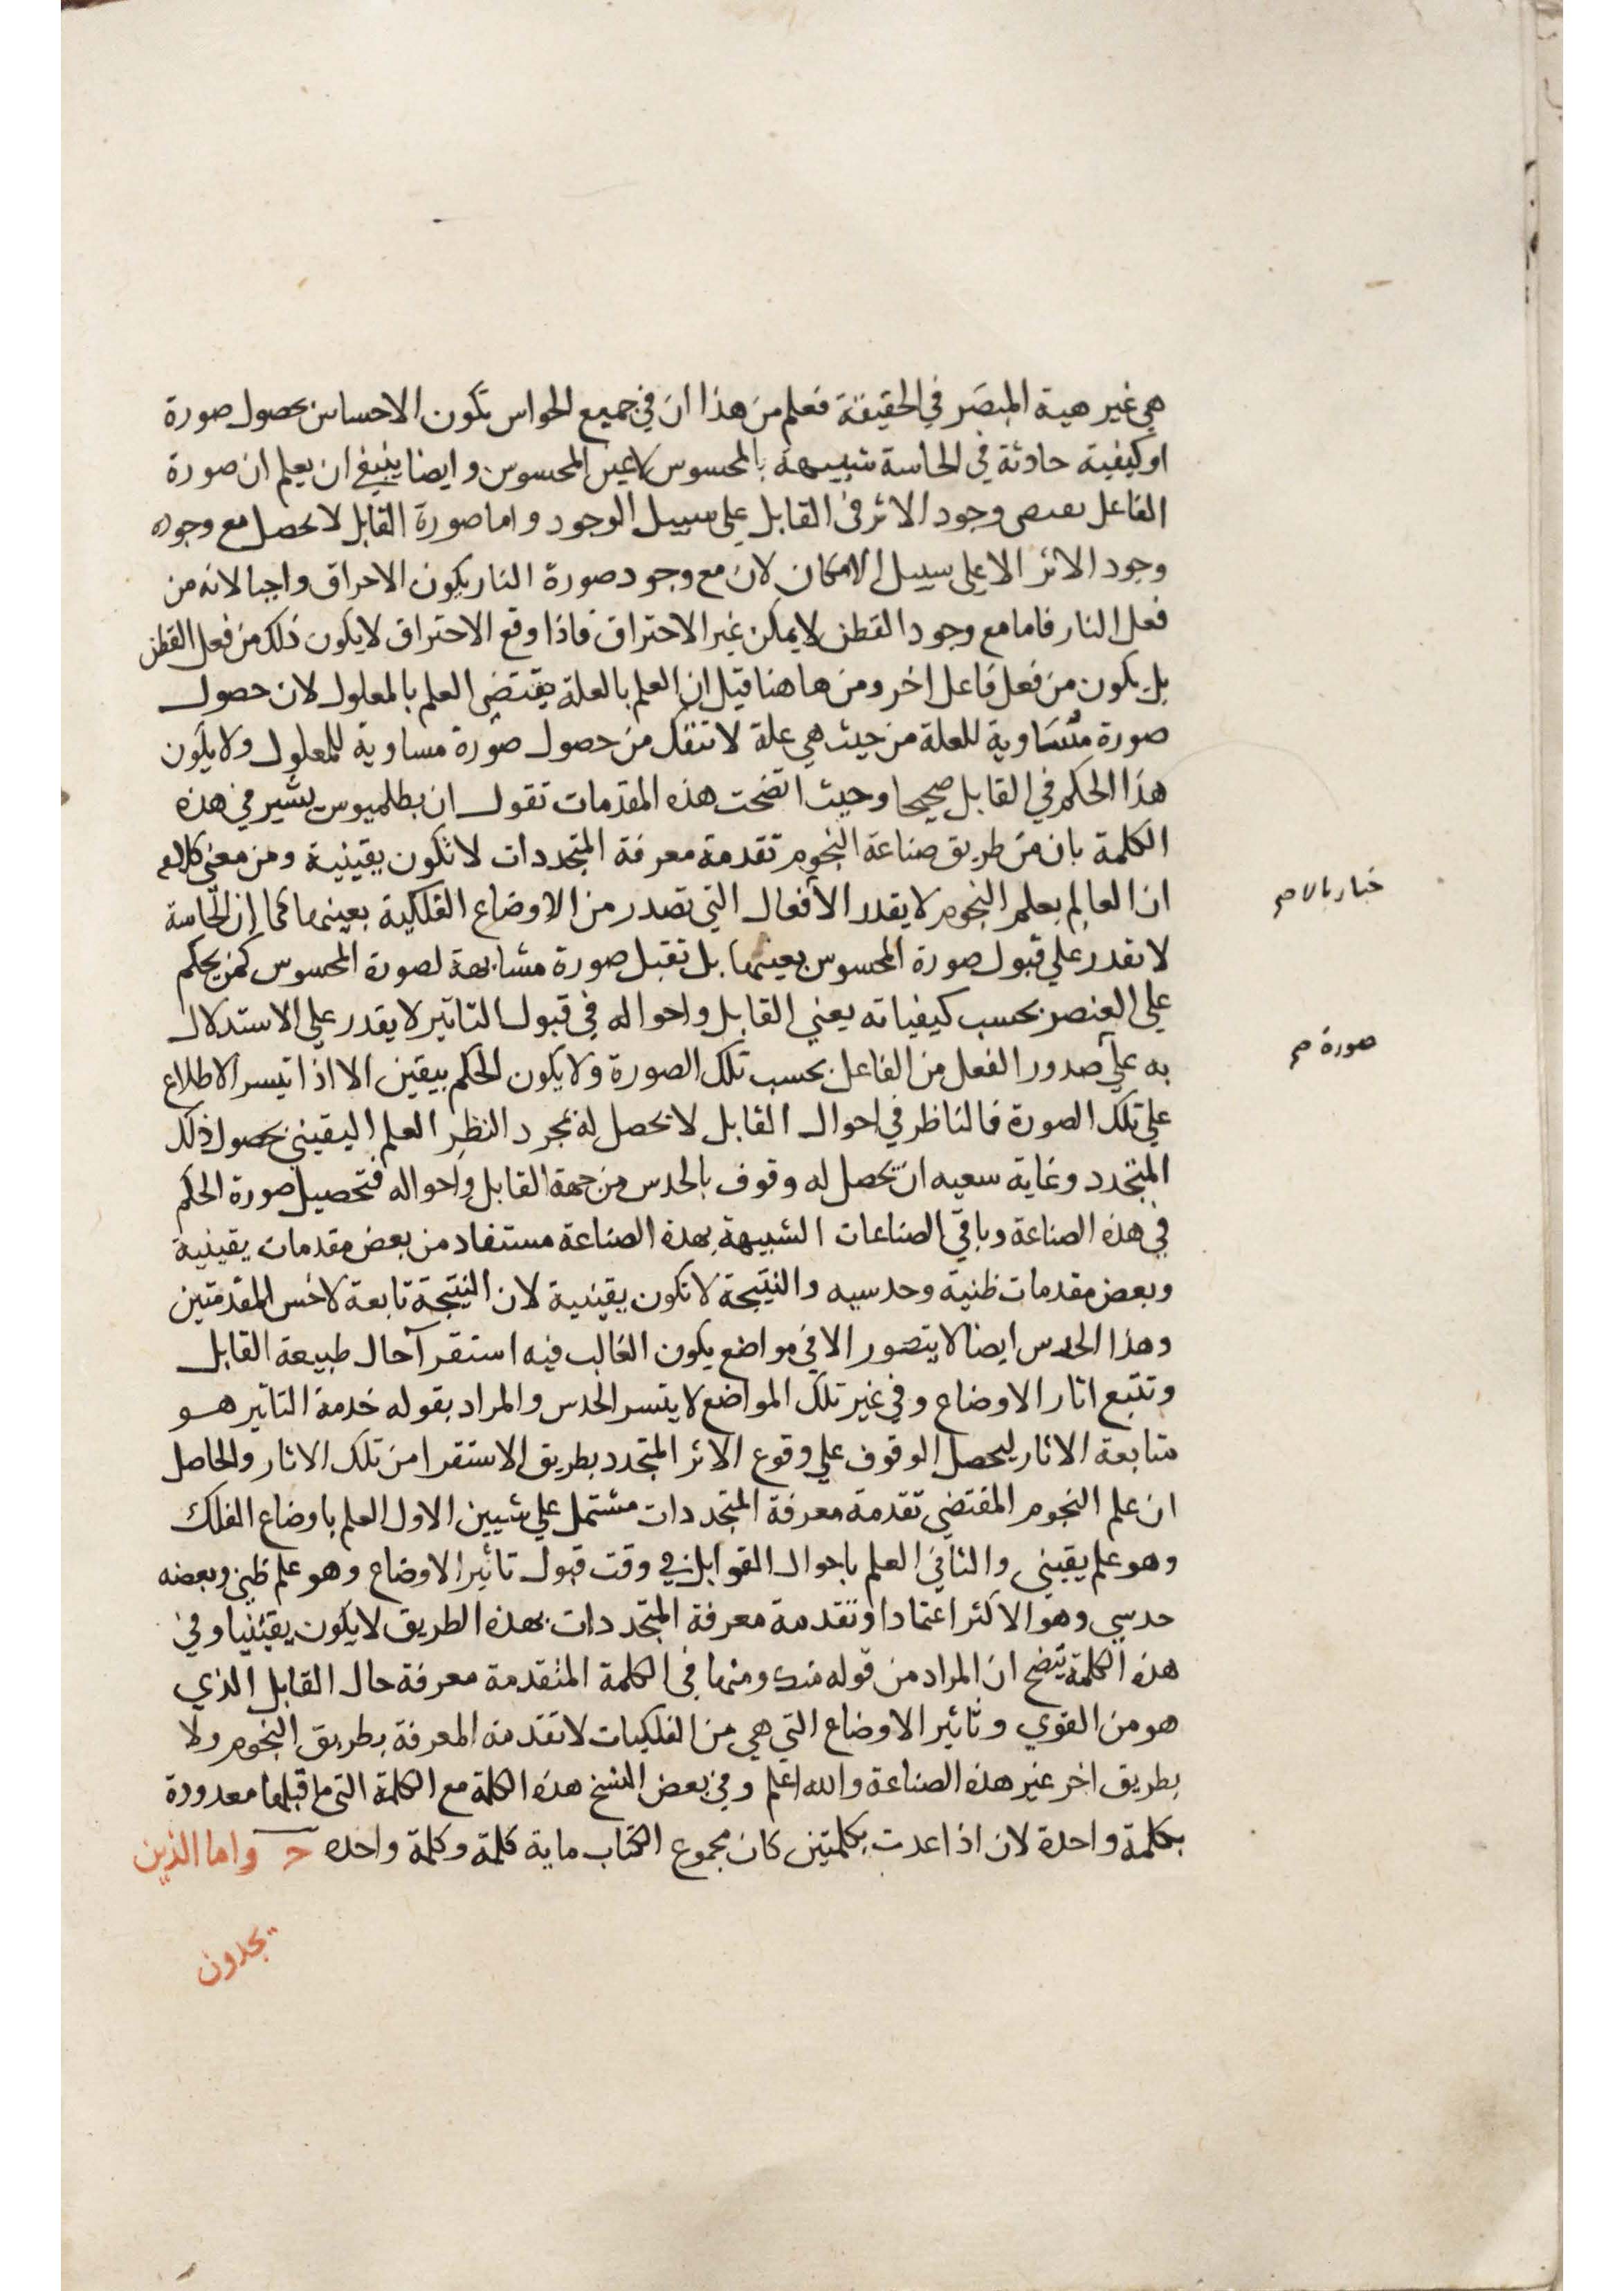 هي غير هيية المبصَر في الحقيقة فعلم من هذا ان في جميع الحواس تكون الاحساس بحصول صورة
او كيفية حادثة في الحاسة شبيهة بالمحسوس لا عين المحسوس وايضا ينبغي ان يعلم ان صورة
الفاعل وجود الاثر في القابل على سبيل الوجود واما صورة القابل لا يحصل مع وجوده
وجود الاثر الا على سبيل الامكان لان مع وجود صورة النار يكون الاحراق واجبا لانه من
فعل النار فاما مع وجود القطن لا يمكن غير الاحتراق فاذا وقع الاحتراق لا يكون ذلك من فعل القطن
بل يكون من فعل فاعل اخر ومن هاهنا قيل ان العلم بالعلة يقتضي العلم بالمعلول لان حصول
صورة مساوية للعلة من حيث هي علة لا تنفك من حصول صورة مساوية للمعلول ولا يكون
هذا الحكم في القابل صحيحا وحيث اتضحت هذه المقدمات نقول ان بطلميوس يشير في هذه
الكلمة بان من طريق صناعة النجوم تقدمة معرفة المتجددات لا تكون يقينية ومن معنى كلامه
ان العالم بعلم النجوم لا يقدر الأفعال التي تصدر من الاوضاع الفلكية بعينها كما ان الحاسة
خبار بالا صح
لا تقدر على قبول صورة المحسوس بعينها بل تقبل صورة مشابهة لصورة المحسوس كمن يحكم
على العنصر بحسب كيفياته يعني القابل واحواله في قبول التاثير لا يقدر على الاستدلال
به على صدور الفعل من الفاعل بحسب تلك الصورة ولا يكون الحكم بيقين الا اذا تيسر الاطلاع
صورة صح
على تلك الصورة فالناظر في احوال القابل لا يحصل له بمجرد النظر العلم اليقيني بحصول ذلك
المتجدد وغاية سعيه ان يحصل له وقوف بالحدس من جهة القابل واحواله فتحصيل صورة الحكم
في هذه الصناعة وباقي الصناعات الشبيهة بهذه الصناعة مستفاد من بعض مقدمات يقينية
وبعض مقدمات ظنية وحدسيه والنتيجة لا تكون يقينية لان النتيجة تابعة لاخس المقدمتين
وهذا الحدس ايضا لا يتصور الا في مواضع يكون الغالب فيه استقرآ حال طبيعة القابل
وتتبع اثار الاوضاع وفي غير تلك المواضع لا يتسر الحدس والمراد بقوله خدمة التاثير هو
متابعة الاثار ليحصل الوقوف على وقوع الاثر المتجدد بطريق الاستقرا من تلك الاثار والحاصل
ان علم النجوم المقتضي تقدمة معرفة المتجددات مشتمل على شيين الاول العلم باوضاع الفلك
وهو علم يقيني والثاني العلم باحوال القوابل في وقت قبول تاثير الاوضاع وهو علم ظني وبعضه
حدسي وهو الاكثر اعتمادا وتقدمة معرفة المتجددات بهذه الطريق لا يكون يقينيا وفي
هذه الكلمة يتضح ان المراد من قوله منك ومنها في الكلمة المتقدمة معرفة حال القابل الذي
هو من القوي وتاثير الاوضاع التي هي من الفلكيات لا تقدمه المعرفة بطريق النجوم ولا
بطريق اخر غير هذه الصناعة والله اعلم وفي بعض النسخ هذه الكلمة مع الكلمة التي ما قبلها معدودة
بكلمة واحدة لان اذا عدت بكلمتين كان مجموع الكتاب ماية كلمة وكلمة واحده حـ واما الذين
يجدون